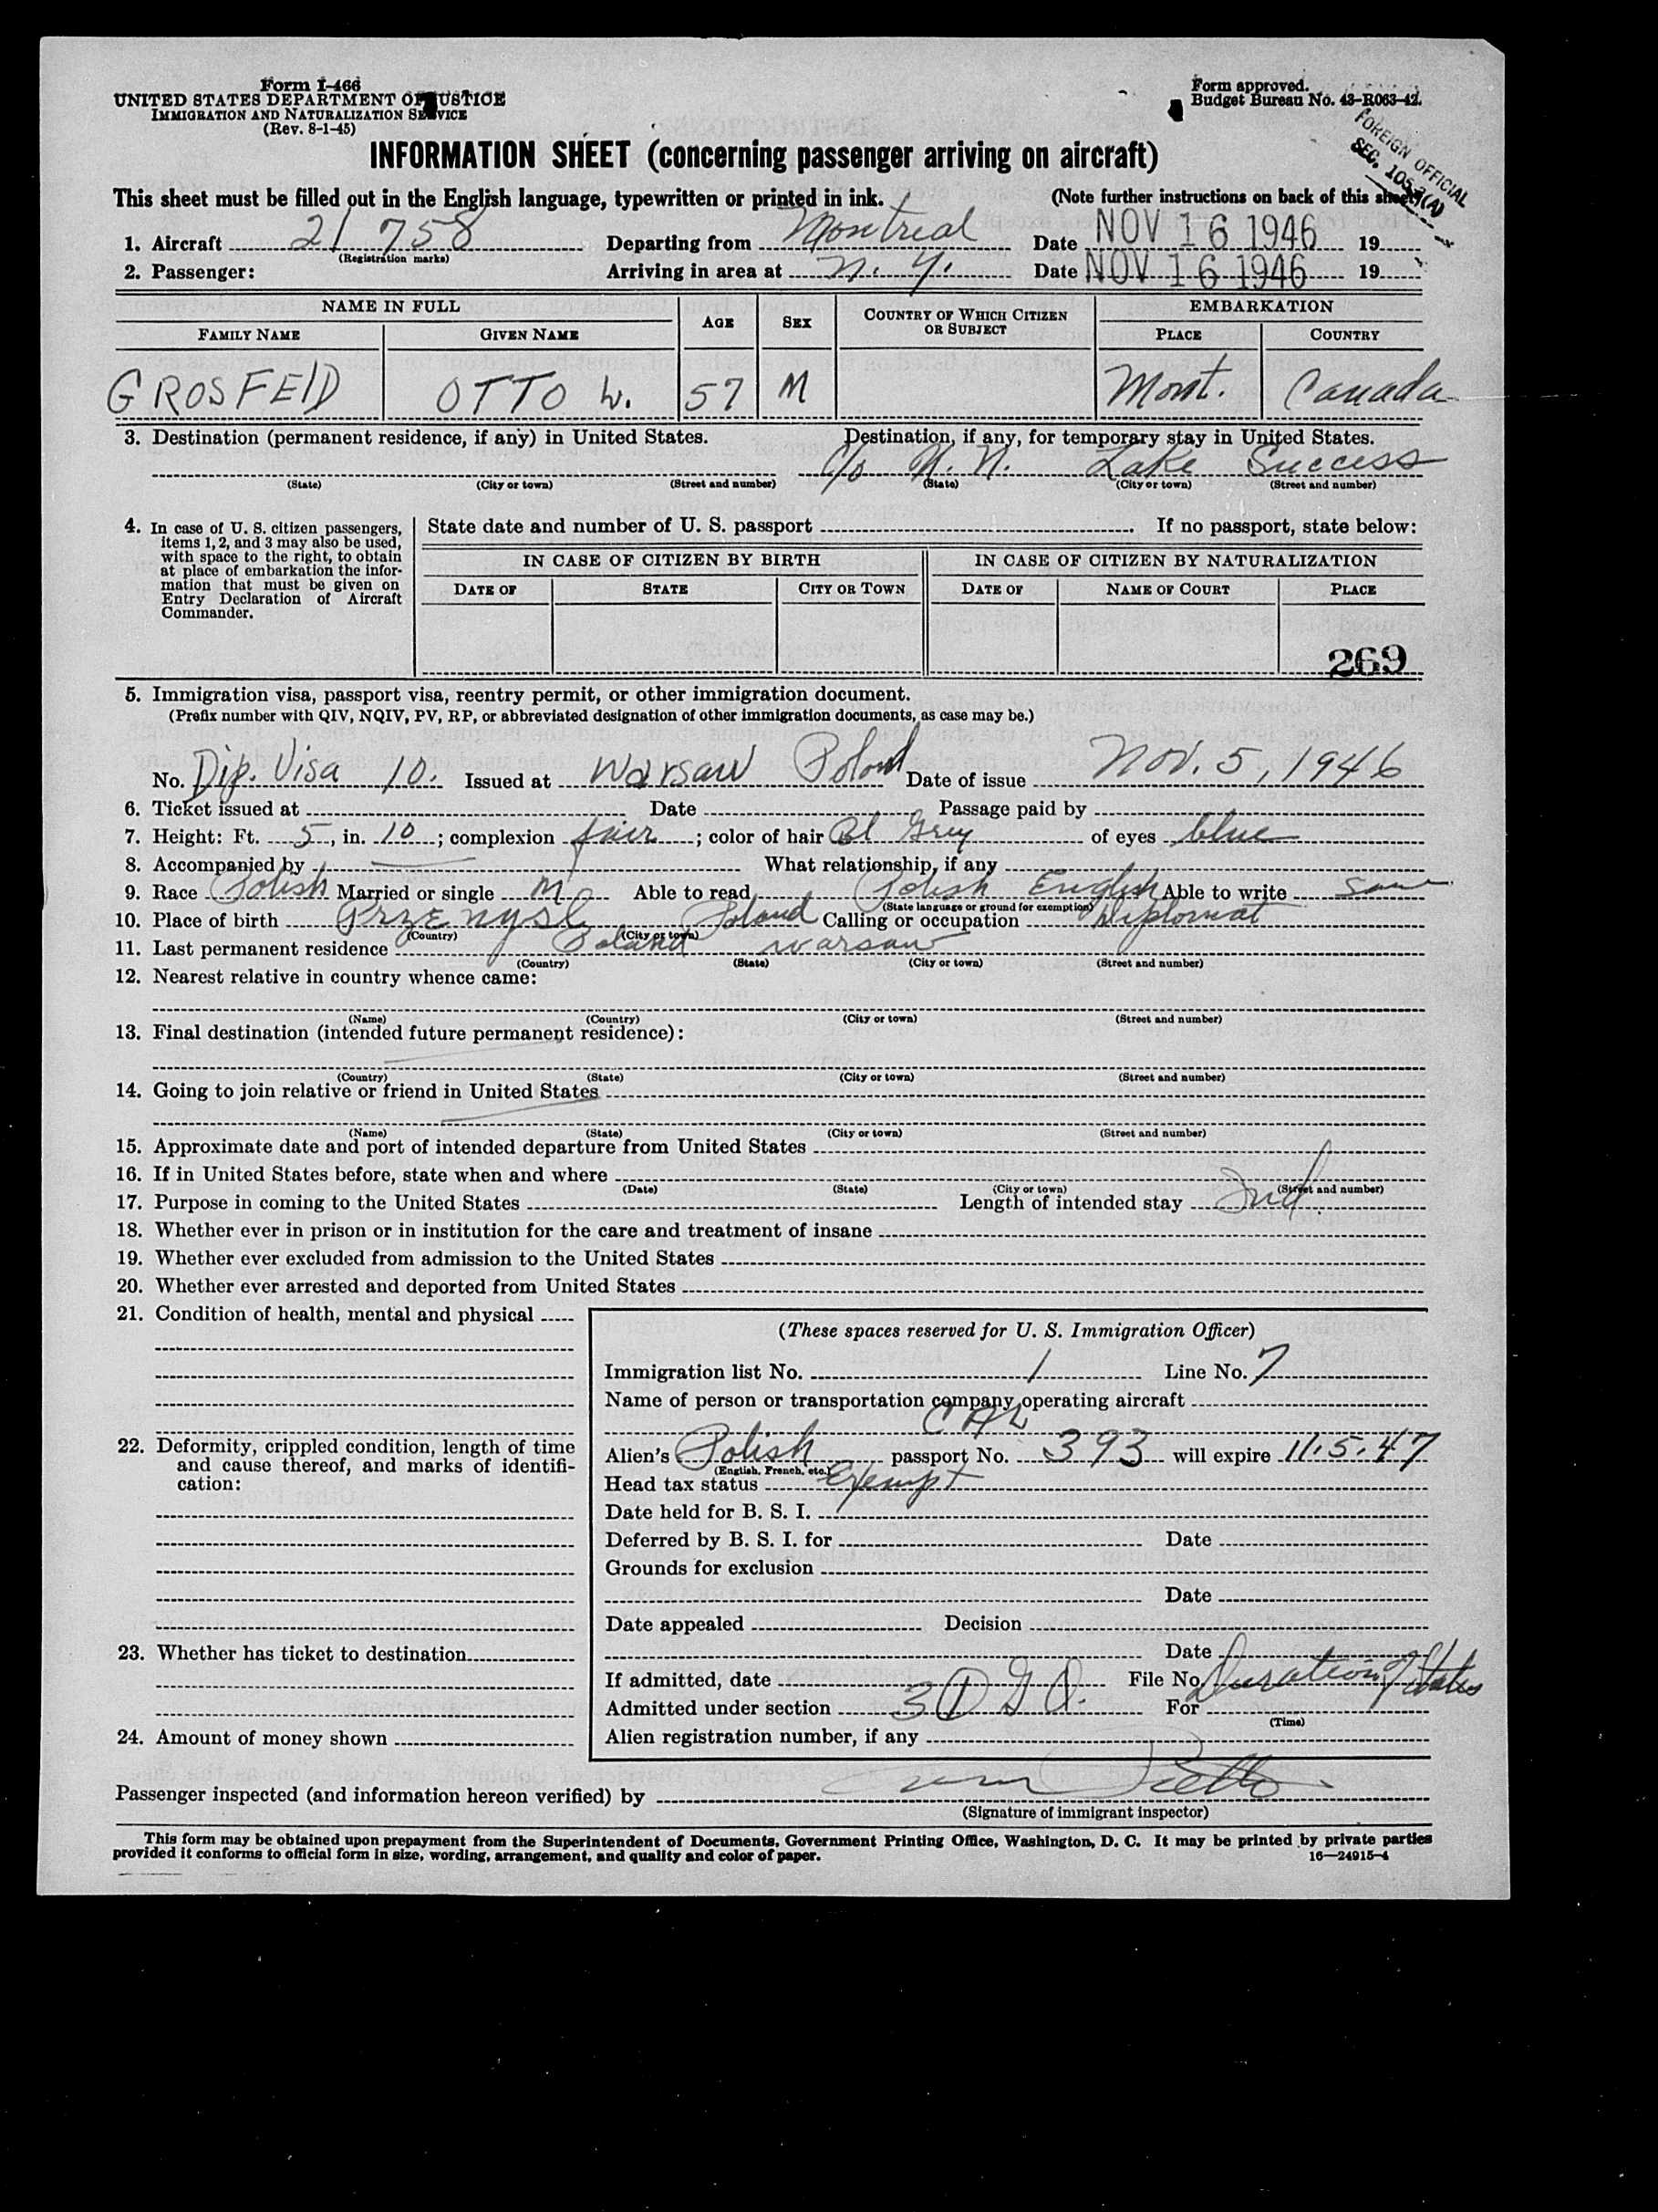 Form I-466
UNITED STATES DEPARTMENT OF JUSTICE
IMMIGRATION AND NATURALIZATION SERVICE
(Rev. 8-1-45)
Form approved.
Budget Bureau No. 43-R063-42.
FOREIGN OFFICIAL
SEC. 105.3(A)
INFORMATION SHEET (concerning passenger arriving on aircraft)
This sheet must be filled out in the English language, typewritten or printed in ink. (Note further instructions on back of this sheet)
1. Aircraft 21 758 Departing from Montreal Date NOV 16 1946 19
(Registration marks)
2. Passenger: Arriving in area at N. Y. Date NOV 16 1946 19
NAME IN FULL AGE SEX COUNTRY OF WHICH CITIZEN OR SUBJECT EMBARKATION
FAMILY NAME GIVEN NAME PLACE COUNTRY
GROSFELD OTTO W. 57 M Mont. Canada
3. Destination (permanent residence, if any) in United States. Destination, if any, for temporary stay in United States.
c/o U. N. Lake Success
(State) (City or town) (Street and number) (State) (City or town) (Street and number)
4. In case of U. S. citizen passengers, items 1, 2, and 3 may also be used, with space to the right, to obtain at place of embarkation the information that must be given on Entry Declaration of Aircraft Commander.
State date and number of U. S. passport If no passport, state below:
IN CASE OF CITIZEN BY BIRTH IN CASE OF CITIZEN BY NATURALIZATION
DATE OF STATE CITY OR TOWN DATE OF NAME OF COURT PLACE
269
5. Immigration visa, passport visa, reentry permit, or other immigration document.
(Prefix number with QIV, NQIV, PV, RP, or abbreviated designation of other immigration documents, as case may be.)
No. Dip. Visa 10. Issued at Warsaw Poland Date of issue Nov. 5, 1946
6. Ticket issued at Date Passage paid by
7. Height: Ft. 5, in. 10; complexion fair; color of hair Bl Grey of eyes blue
8. Accompanied by What relationship, if any
9. Race Polish Married or single M Able to read Polish English Able to write same
(State language or ground for exemption)
10. Place of birth Przemysl Poland Calling or occupation Diplomat
(Country) (City or town)
11. Last permanent residence Poland Warsaw
(Country) (State) (City or town) (Street and number)
12. Nearest relative in country whence came:
(Name) (Country) (City or town) (Street and number)
13. Final destination (intended future permanent residence):
(Country) (State) (City or town) (Street and number)
14. Going to join relative or friend in United States
(Name) (State) (City or town) (Street and number)
15. Approximate date and port of intended departure from United States
16. If in United States before, state when and where
(Date) (State) (City or town) (Street and number)
17. Purpose in coming to the United States Length of intended stay Ind.
18. Whether ever in prison or in institution for the care and treatment of insane
19. Whether ever excluded from admission to the United States
20. Whether ever arrested and deported from United States
21. Condition of health, mental and physical
22. Deformity, crippled condition, length of time and cause thereof, and marks of identification:
23. Whether has ticket to destination
24. Amount of money shown
(These spaces reserved for U. S. Immigration Officer)
Immigration list No. 1 Line No. 7
Name of person or transportation company operating aircraft
CAL
Alien's Polish passport No. 393 will expire 11.5.47
(English, French, etc.)
Head tax status Exempt
Date held for B. S. I.
Deferred by B. S. I. for Date
Grounds for exclusion
Date
Date appealed Decision
Date
If admitted, date File No.
Admitted under section 3(1) G.O. For Duration of Status
(Time)
Alien registration number, if any
Passenger inspected (and information hereon verified) by
(Signature of immigrant inspector)
This form may be obtained upon prepayment from the Superintendent of Documents, Government Printing Office, Washington, D. C. It may be printed by private parties
provided it conforms to official form in size, wording, arrangement, and quality and color of paper. 16—24915-4